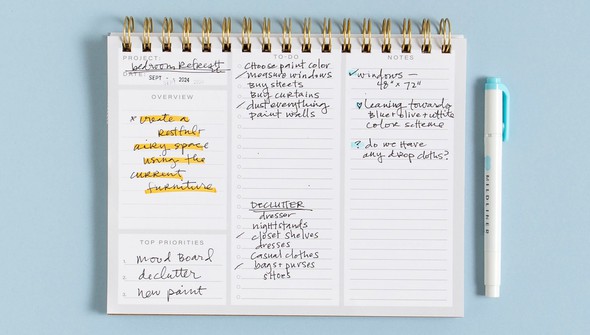 PROJECT:
bedroom Refresh
DATE: SEPT 2024
OVERVIEW
* create a
restful
airy space
using the
current
furniture
TOP PRIORITIES
1. mood Board
2. declutter
3. new paint
TO-DO
Choose paint color
✓ measure windows
Buy sheets
Buy curtains
✓ dust everything
paint walls
DECLUTTER
dresser
nightstands
✓ closet shelves
dresses
casual clothes
✓ bags + purses
shoes
NOTES
✓ windows —
48" x 72"
♥ leaning towards
Blue + olive + white
color scheme
? do we have
any drop cloths?
MILDLINER